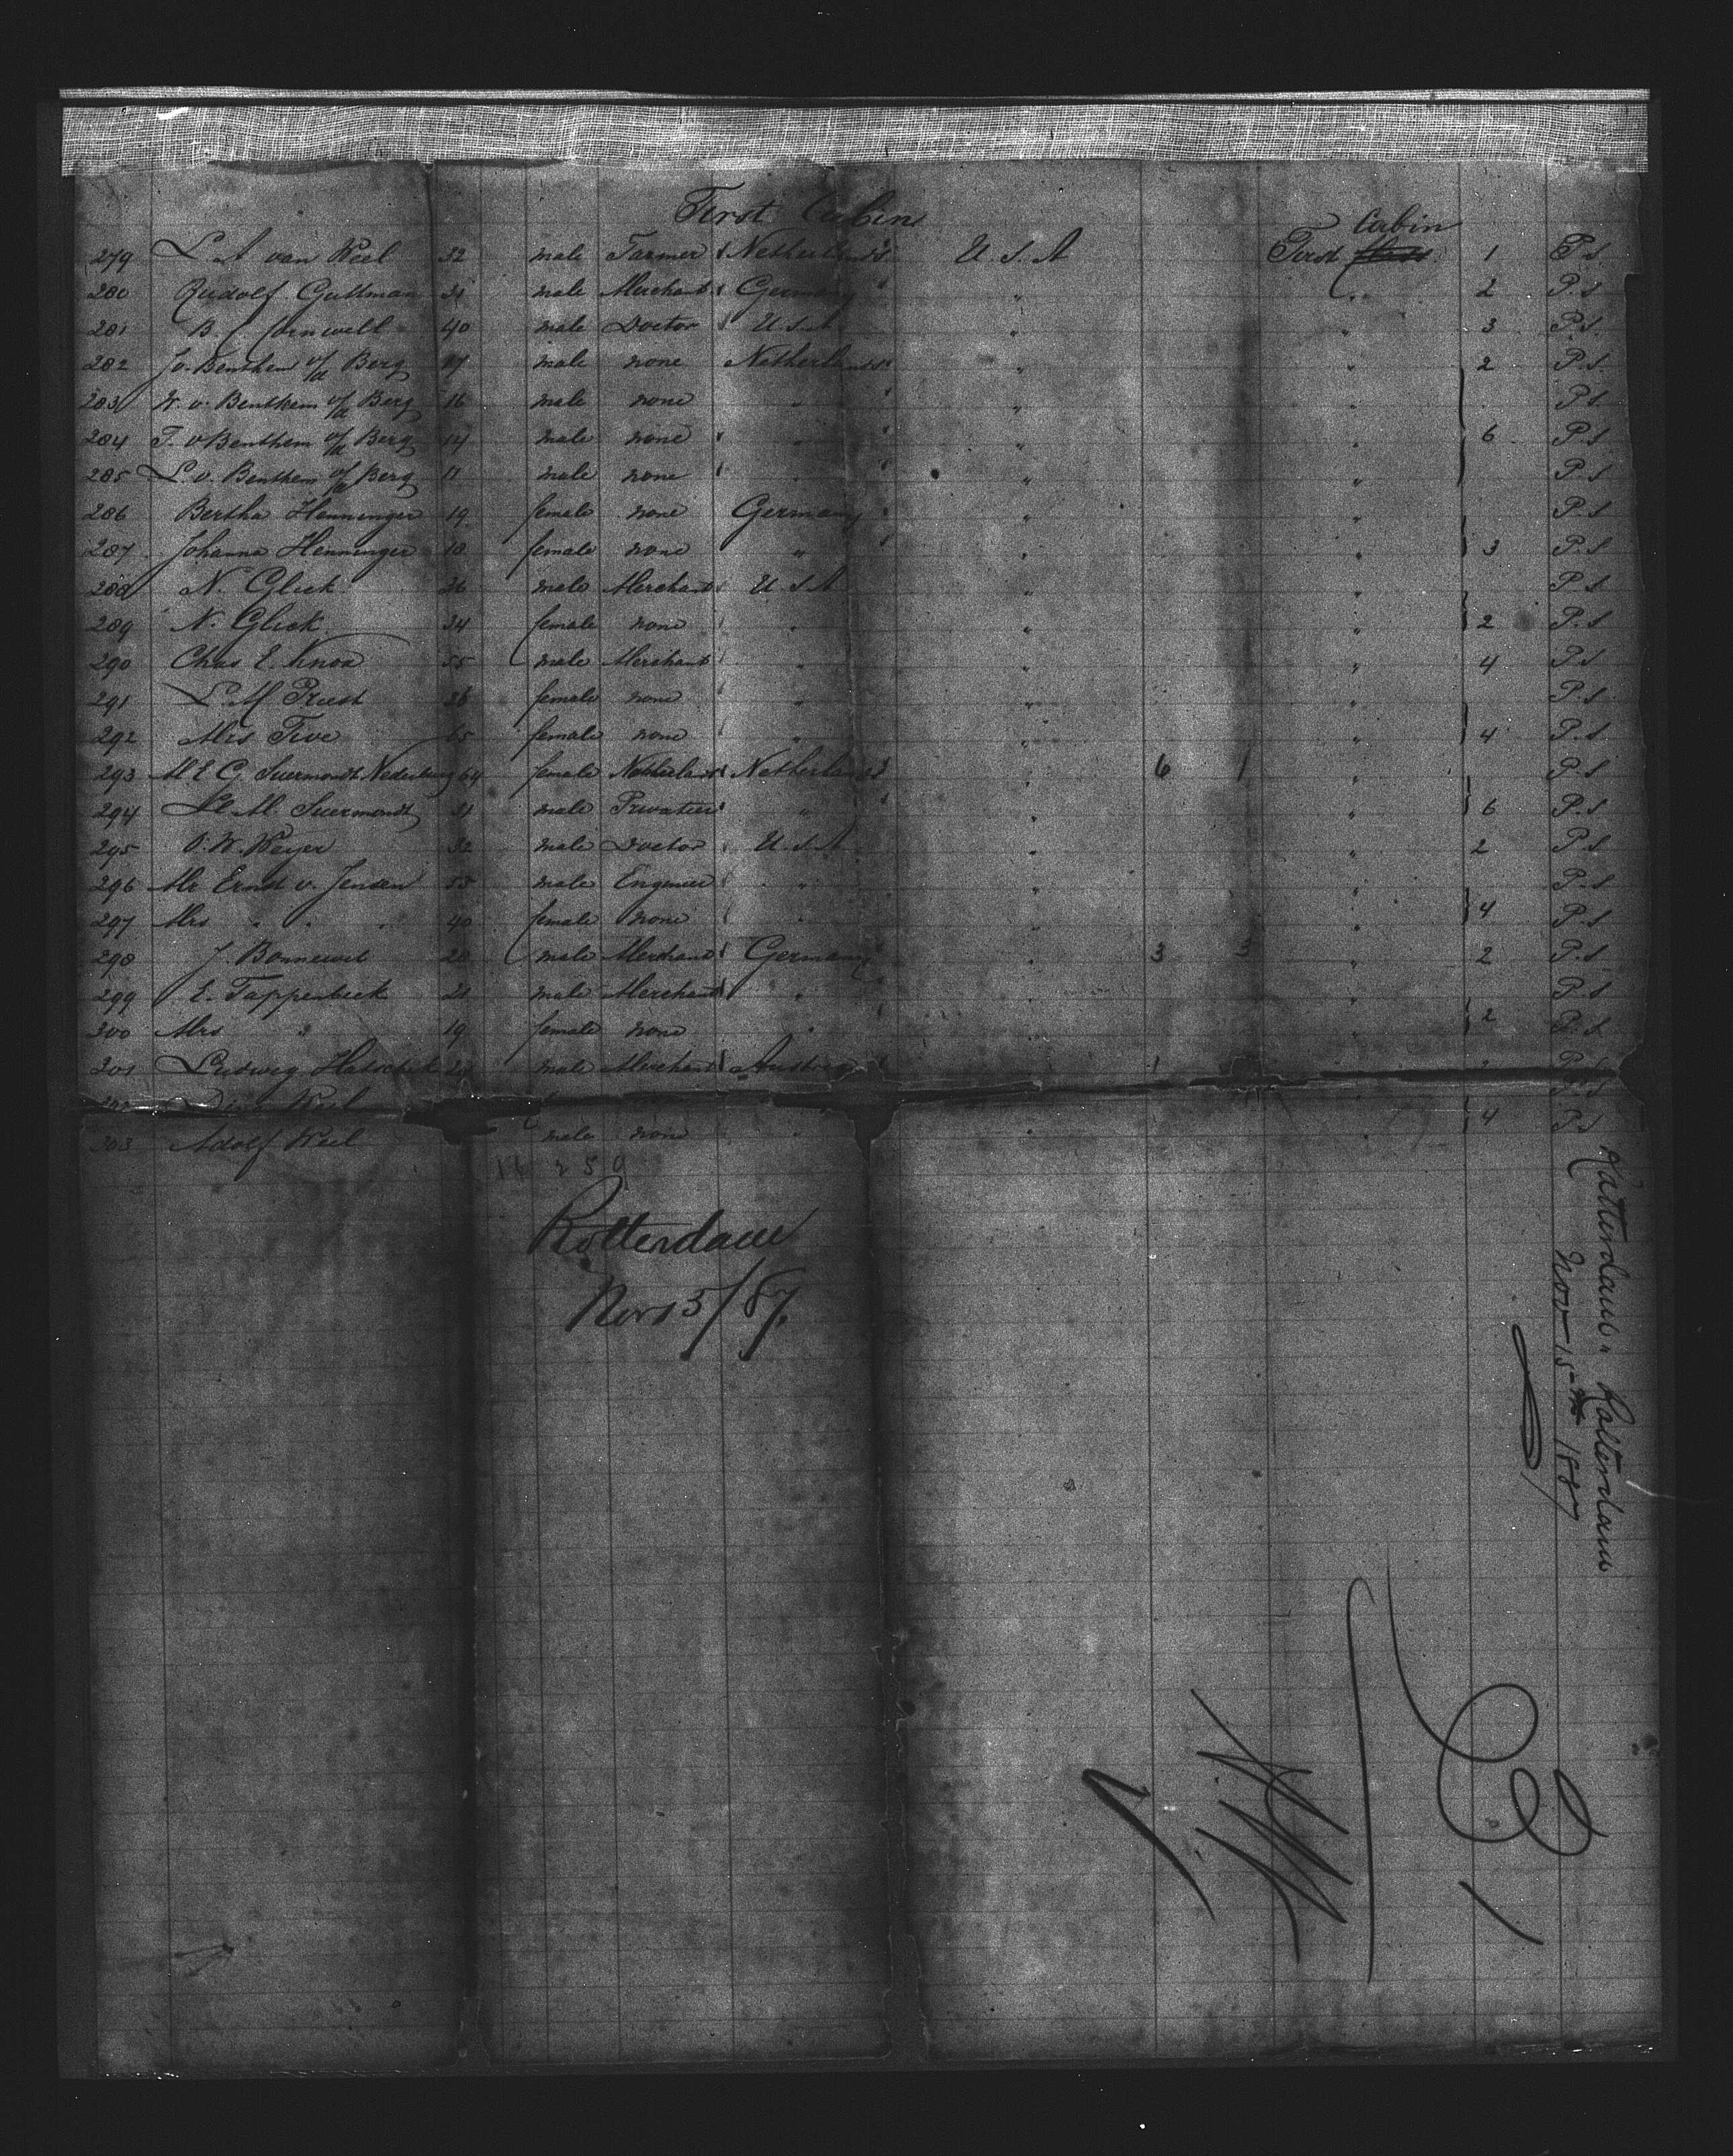 First Cabin
Cabin
279 L. A van Weel 32 male Farmer Netherlands U. S. A First Class 1 P. S.
280 Rudolf Guttman 31 male Merchant Germany " " 2 P. S
281 B. C. Cornwell 40 male Doctor U. S. A " " 3 P. S.
282 Jv. Benthem v/d Berg 17 male none Netherlands " " 2 P. S.
283 W. v. Benthem v/d Berg 16 male none " " " P. S.
284 F. v Benthem v/d Berg 14 male none " " " 6 P. S
285 L v. Benthem v/d Berg 11 male none " " " P. S
286 Bertha Henninger 19 female none Germany " " P. S
287 Johanna Henninger 18 female none " " " 3 P. S
288 N. Glick 36 male Merchant U. S. A " " P. S
289 N. Glick 34 female none " " " 2 P. S
290 Chas E. Knox 55 male Merchant " " " 4 P. S
291 L. M 36 female none " " " P. S
292 Mrs 65 female none " " " 4 P. S
293 M. E. G. Suermondt Nederburg 64 female Netherlands Netherlands " 6 1 " P. S
294 M. Suermondt 31 male Privatier " " " 6 P. S
295 O. W. Weyer 32 male Doctor U. S. A " " 2 P. S
296 Mr Ernst v. Jensen 55 male Engineer " " " P. S
297 Mrs " " " 40 female none " " " 4 P. S
298 J. Bonnewit 28 male Merchant Germany " 3 3 " 2 P. S
299 E. Tappenbeck 21 male Merchant " " " P. S
300 Mrs " 19 female none " " " 2 P. S.
301 Ludwig Hatschek male Merchant Austria 1 P. S
Weel P. S
303 Adolf Weel male none " " " 4 P. S
11 250
Rotterdam
Nov 15/87.
Rotterdam " Rotterdam
Nov 15th 1887